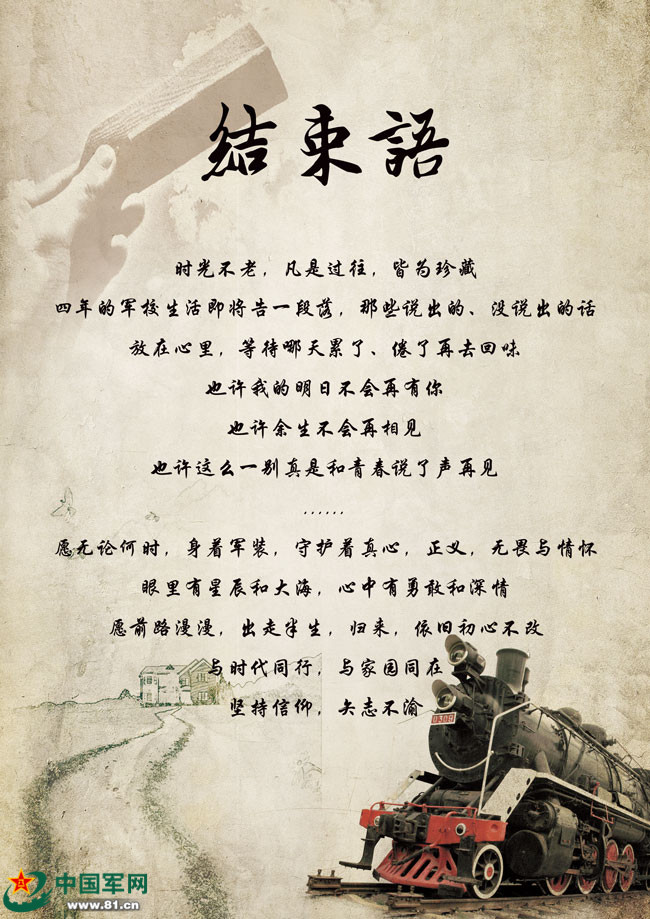 結束語
时光不老，凡是过往，皆为珍藏
四年的军校生活即将告一段落，那些说出的、没说出的话
放在心里，等待哪天累了、倦了再去回味
也许我的明日不会再有你
也许余生不会再相见
也许这么一别真是和青春说了声再见
......
愿无论何时，身着军装，守护着真心，正义，无畏与情怀
眼里有星辰和大海，心中有勇敢和深情
愿前路漫漫，出走半生，归来，依旧初心不改
与时代同行，与家园同在
坚持信仰，矢志不渝
中国军网
www.81.cn